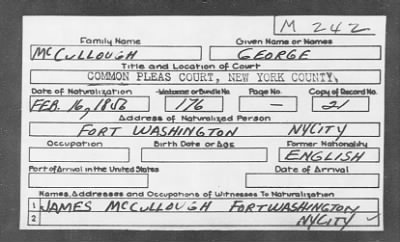 M 242
Family Name Given Name or Names
McCULLOUGH GEORGE
Title and Location of Court
COMMON PLEAS COURT, NEW YORK COUNTY,
Date of Naturalization Volume or Bundle No. Page No. Copy of Record No.
FEB. 16, 1856 176 — 21
Address of Naturalized Person
FORT WASHINGTON NYCITY
Occupation Birth Date or Age Former Nationality
ENGLISH
Port of Arrival in the United States Date of Arrival
Names, Addresses and Occupations of Witnesses To Naturalization
1 JAMES McCULLOUGH FORT WASHINGTON
2 NYCITY ✓